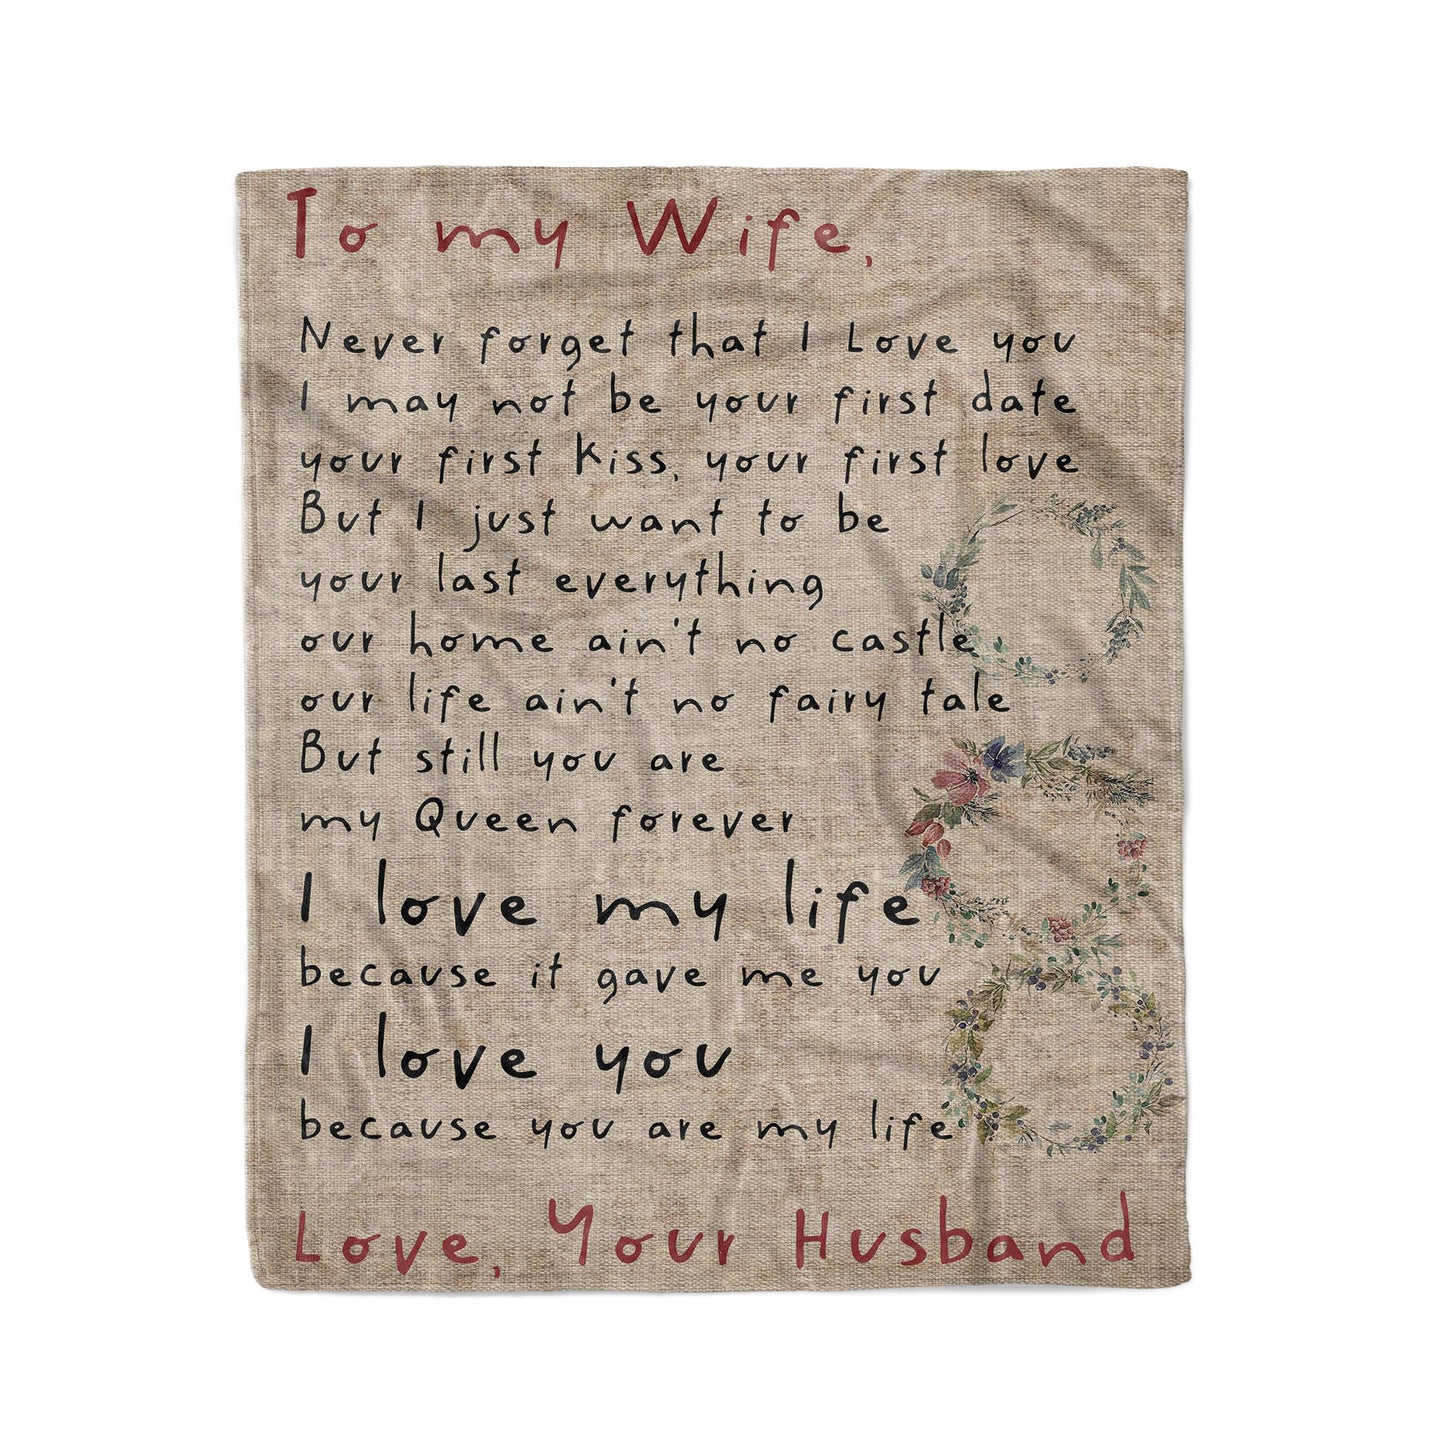 To my Wife,
Never forget that I Love you
I may not be your first date
your first kiss, your first love
But I just want to be
your last everything
our home ain't no castle
our life ain't no fairy tale
But still you are
my Queen forever
I love my life
because it gave me you
I love you
because you are my life
Love, Your Husband